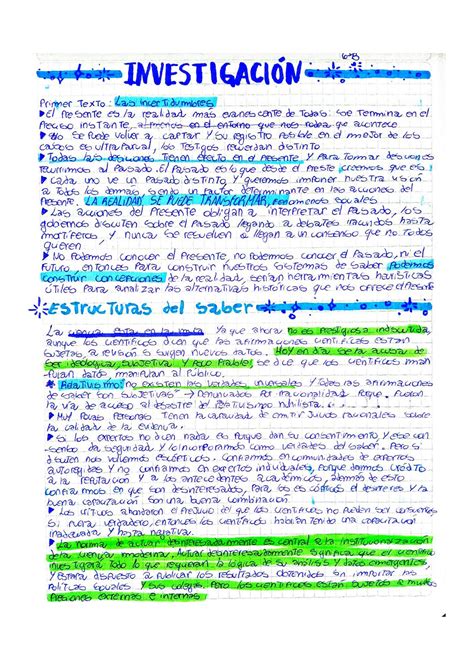 6-8
INVESTIGACIÓN
Primer Texto: Las incertidumbres
El Presente es la realidad mas evanescente de Todas: Se Termina en el
Preciso instante, en el entorno que nos rodea que acontece
No se Puede volver a captar y su registro Posible en el mejor de los
casos es ultraparcial, los Testigos recuerdan distinto
Todas las desiciones Tienen efecto en el Presente, y Para Tomar
recurrimos al Pasado. El Pasado es lo que desde el Presente creemos que es
cada uno ve un Pasado distinto y queremos imponer nuestra visión
a Todos los demas, siendo un factor determinante en las acciones del
Presente. LA REALIDAD SE PUEDE TRANSFORMAR, Fenomenos sociales
Las acciones del Presente obligan a interpretar el Pasado, los
gobiernos discuten sobre el Pasado llegando a debates hasta
mortiferos, y nunca se resuelven o llegan a un consenso que no Todos
quieren
No Podemos conocer el Presente, no Podemos conocer el Pasado, ni el
Futuro, entonces Para construir nuestros sistemas de saber Podemos
construir concepciones de la realidad, serian herramientas
útiles Para analizar las alternativas historicas que nos ofrece el Presente
Estructuras del saber
La esta en la Ya que ahora no es Prestigiosa indiscutida,
aunque los cientificos dicen que las afirmaciones cientificas estan
sujetas a revision si surgen nuevos datos. Hoy en dia se la acusa de
ser ideologica, subjetiva y Poco fiable, se dice que los cientificos
datos, manipulan al Publico.
Relativismo: no existen las verdades universales y Todas las afirmaciones
de saber son subjetivas → Denunciados Por irracionalidad
la via de acceso al desastre del
Muy Pocas Personas Tienen la capacidad de emitir Juicios racionales sobre
la calidad de la evidencia.
Si los expertos no dicen nada es Porque dan su consentimiento, y ese
da seguridad y lo incorporamos como verdades del saber. Pero si
discuten nos volvemos escepticos. Confiamos en comunidades de expertos
autoregidas y no confiamos en expertos individuales, Porque damos credito
a la reputacion y a los antecedentes academicos, ademas de esto
confiamos en que son desinteresados, Para los es comun el desinteres y la
buena capacitacion son una buena combinación
Los criticos abandonaron el Prejuicio del que los cientificos no Pueden ser
si, nueva verdadero, entonces los cientificos habrian tenido una capacitacion
inadecuada y hasta negativa.
La norma de actuar desinteresadamente es central a la institucionalización
de la ciencia moderna. Actuar desinteresadamente significa que el cientifico
investigará Todo lo que requieran la logica de su analisis y datos emergentes,
y estara dispuesto a Publicar los resultados obtenidos sin importar las
Politicas sociales y sus colegas. Pero los cientificos estan sujetos a multiples
Presiones externas e internas